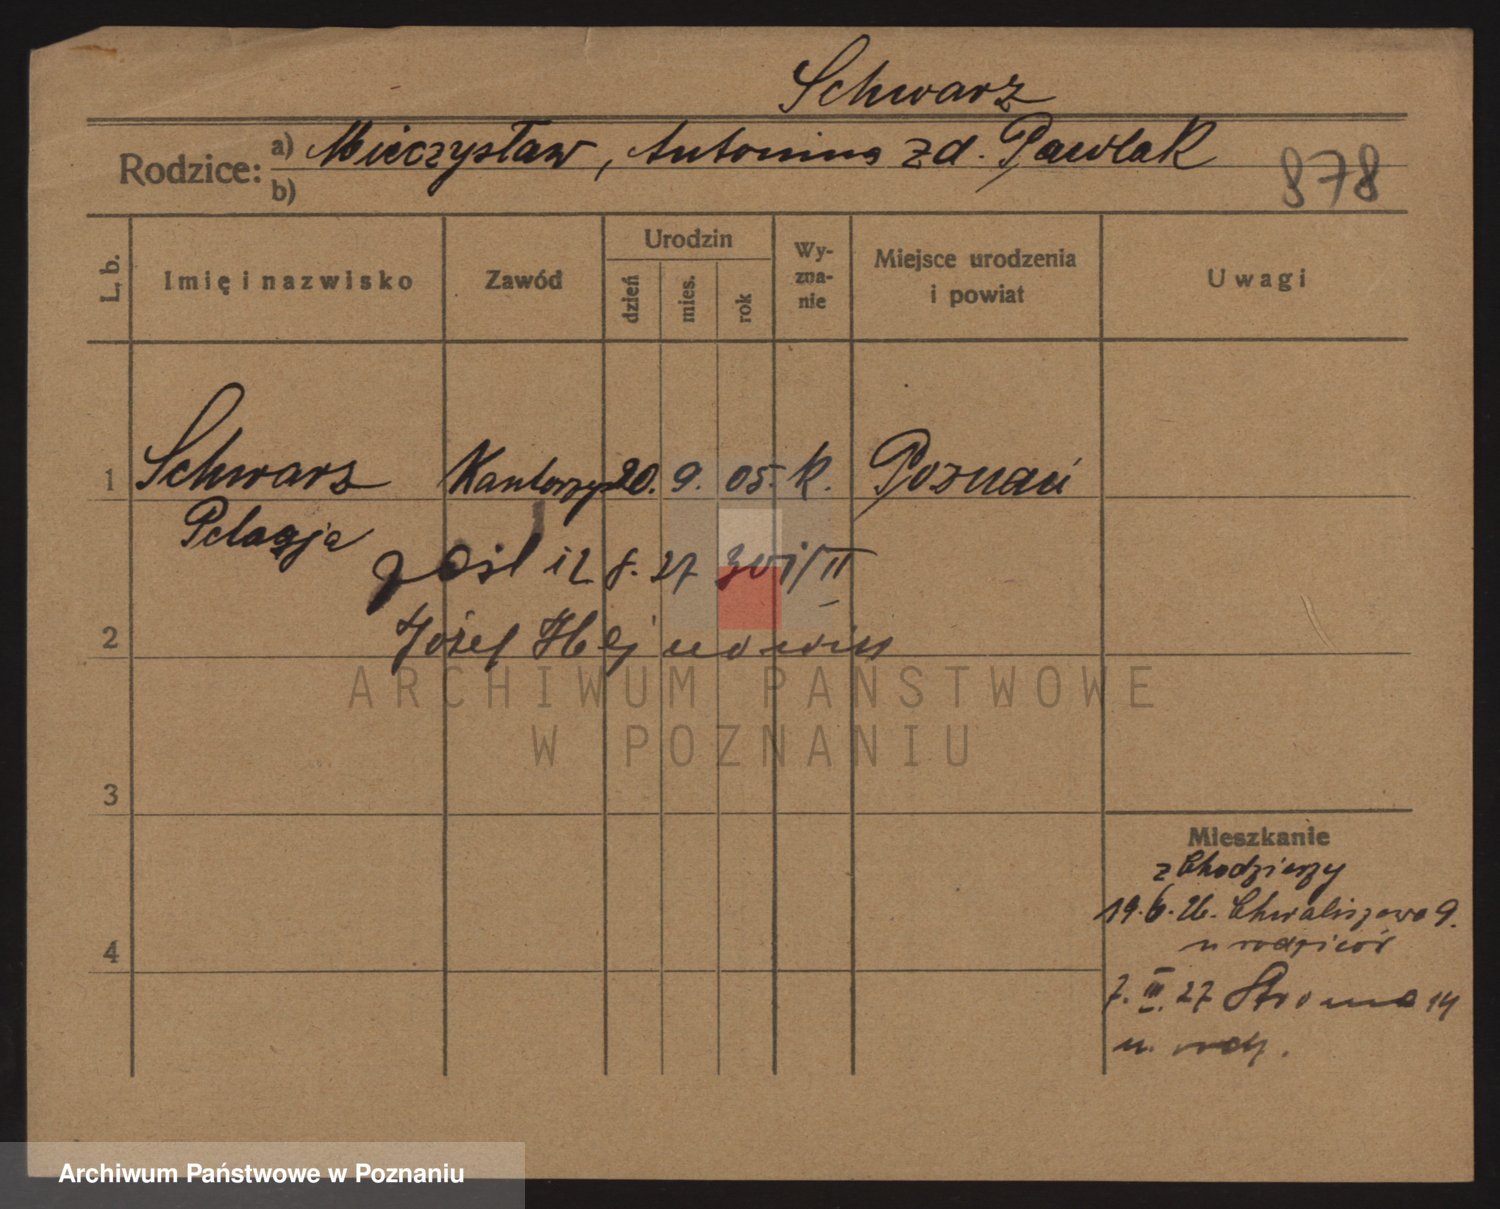 Schwarz
Rodzice: a) Mieczysław, Antonina zd. Pawlak
b)
878
L. b. Imię i nazwisko Zawód Urodzin dzień mies. rok Wy-zna-nie Miejsce urodzenia i powiat Uwagi
1 Schwarz Kantorzys 20. 9. 05. k. Poznań
Pelagja
zaśl 12 8. 27 II
2 Józef
ARCHIWUM PAŃSTWOWE
W POZNANIU
3
Mieszkanie
z Chodzieży
19. 6. 26. Chwaliszewo 9.
u rodziców
4
7. III. 27 Stroma 14
u. rodz.
Archiwum Państwowe w Poznaniu